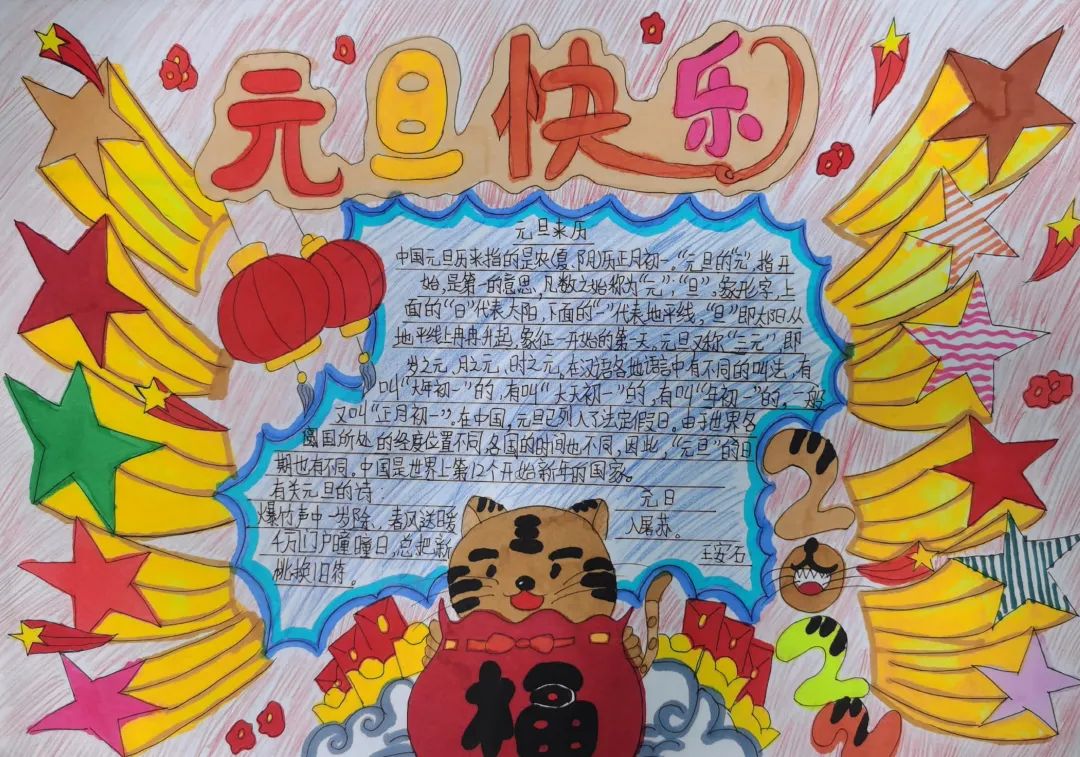 元旦快乐
元旦来历
中国元旦历来指的是农(夏、阴)历正月初一。“元旦的“元”,指开
始,是第一的意思,凡数之始称为“元”;“旦”,象形字,上
面的“日”代表太阳,下面的“一”代表地平线,“旦”即太阳从
地平线上冉冉升起,象征一开始的第一天。元旦又称“三元”,即
岁之元,月之元,时之元,在汉语各地语言中有不同的叫法,有
叫“大年初一”的,有叫“大天初一”的,有叫“年初一”的,一般
又叫“正月初一”。在中国,元旦已列入了法定假日。由于世界各
国所处的经度位置不同,各国的时间也不同,因此,“元旦”的日
期也有不同。中国是世界上第12个开始新年的国家。
有关元旦的诗:
元日
爆竹声中一岁除,春风送暖
入屠苏。
千万门户曈曈日,总把新
王安石
桃换旧符。
福
2022